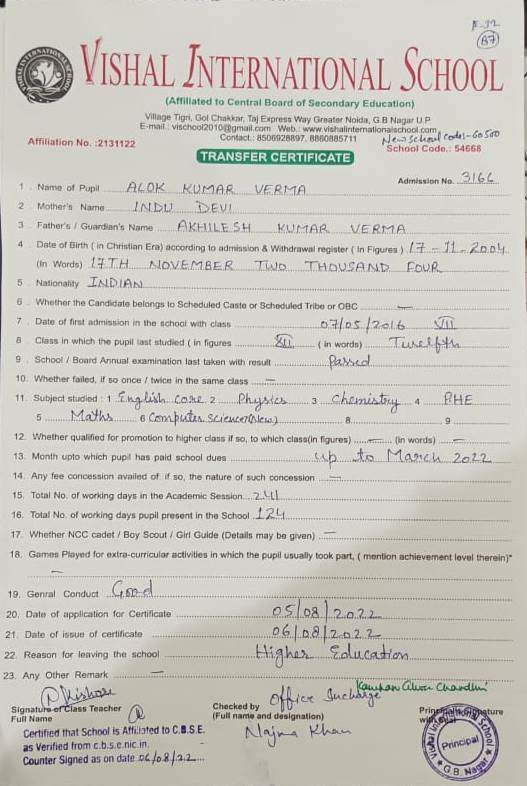 F-32
87
VISHAL INTERNATIONAL SCHOOL
VISHAL INTERNATIONAL SCHOOL
(Affiliated to Central Board of Secondary Education)
Village Tigri, Gol Chakkar, Taj Express Way Greater Noida, G.B Nagar U.P
E-mail.: vischool2010@gmail.com Web.: www.vishalinternationalschool.com
Contact.: 8506928897, 8860885711
New School Code:-60500
Affiliation No. :2131122
School Code.: 54668
TRANSFER CERTIFICATE
Admission No. 3166
1 . Name of Pupil ALOK KUMAR VERMA
2 . Mother's Name INDU DEVI
3 . Father's / Guardian's Name AKHILESH KUMAR VERMA
4 . Date of Birth ( in Christian Era) according to admission & Withdrawal register ( In Figures ) 17-11-2004
(In Words) 17TH NOVEMBER TWO THOUSAND FOUR
5 . Nationality INDIAN
6 . Whether the Candidate belongs to Scheduled Caste or Scheduled Tribe or OBC —
7 . Date of first admission in the school with class 07/05/2016 VII
8 . Class in which the pupil last studied ( in figures XII ( in words) Twelfth
9 . School / Board Annual examination last taken with result Passed
10. Whether failed, if so once / twice in the same class —
11. Subject studied : 1 English core 2 Physics 3 Chemistry 4 PHE
5 Maths 6 Computer Science(New) 8 9
12. Whether qualified for promotion to higher class if so, to which class(in figures) — (in words) —
13. Month upto which pupil has paid school dues up to March 2022
14. Any fee concession availed of if so, the nature of such concession —
15. Total No. of working days in the Academic Session 241
16. Total No. of working days pupil present in the School 124
17. Whether NCC cadet / Boy Scout / Girl Guide (Details may be given) —
18. Games Played for extra-curricular activities in which the pupil usually took part, ( mention achievement level therein)*
—
19. Genral Conduct Good
20. Date of application for Certificate 05/08/2022
21. Date of issue of certificate 06/08/2022
22. Reason for leaving the school Higher Education
23. Any Other Remark —
Signature of Class Teacher
Full Name
Checked by Office Incharge
(Full name and designation)
Najma Khan
Principal Signature
with Seal
Certified that School is Affiliated to C.B.S.E.
as Verified from c.b.s.e.nic.in.
Counter Signed as on date 06/08/22
Vishal International School
Principal
G.B. Nagar